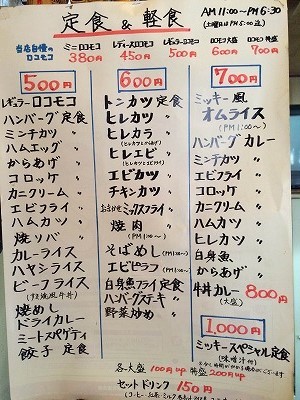 定食 & 軽食
AM 11:00〜PM 6:30
(土曜日はPM5:00迄)
当店自慢の
ロコモコ
ミニロコモコ
380円
レディースロコモコ
450円
レギュラーロコモコ
500円
ロコモコ大盛
600円
ロコモコ特盛
700円
500円
レギュラーロコモコ
ハンバーグ定食
ミンチカツ 〃
ハムエッグ 〃
からあげ 〃
コロッケ 〃
カニクリーム 〃
エビフライ 〃
ハムカツ 〃
焼ソバ 〃
カレーライス
ハヤシライス
ビーフライス
(すき焼風牛丼)
焼めし
ドライカレー
ミートスパゲティ
餃子 定食
600円
トンカツ定食
ヒレカツ 〃
ヒレカラ 〃
(ヒレカツとからあげ)
ヒレエビ 〃
(ヒレカツとエビフライ)
エビカツ 〃
チキンカツ 〃
おまかせミックスフライ 〃
焼肉 〃
(PM1:00〜)
そばめし (PM1:00〜)
エビピラフ (PM1:00〜)
白身魚フライ定食
ハンバーグステーキ 〃
野菜炒め 〃
700円
ミッキー風
オムライス
(PM1:00〜)
ハンバーグ カレー
ミンチカツ 〃
エビフライ 〃
コロッケ 〃
カニクリーム 〃
ハムカツ 〃
ヒレカツ 〃
白身魚 〃
からあげ 〃
牛丼カレー 800円
(大盛)
1,000円
ミッキースペシャル定食
(味噌汁付)
各大盛 100円up 特盛 200円up
セットドリンク 150円